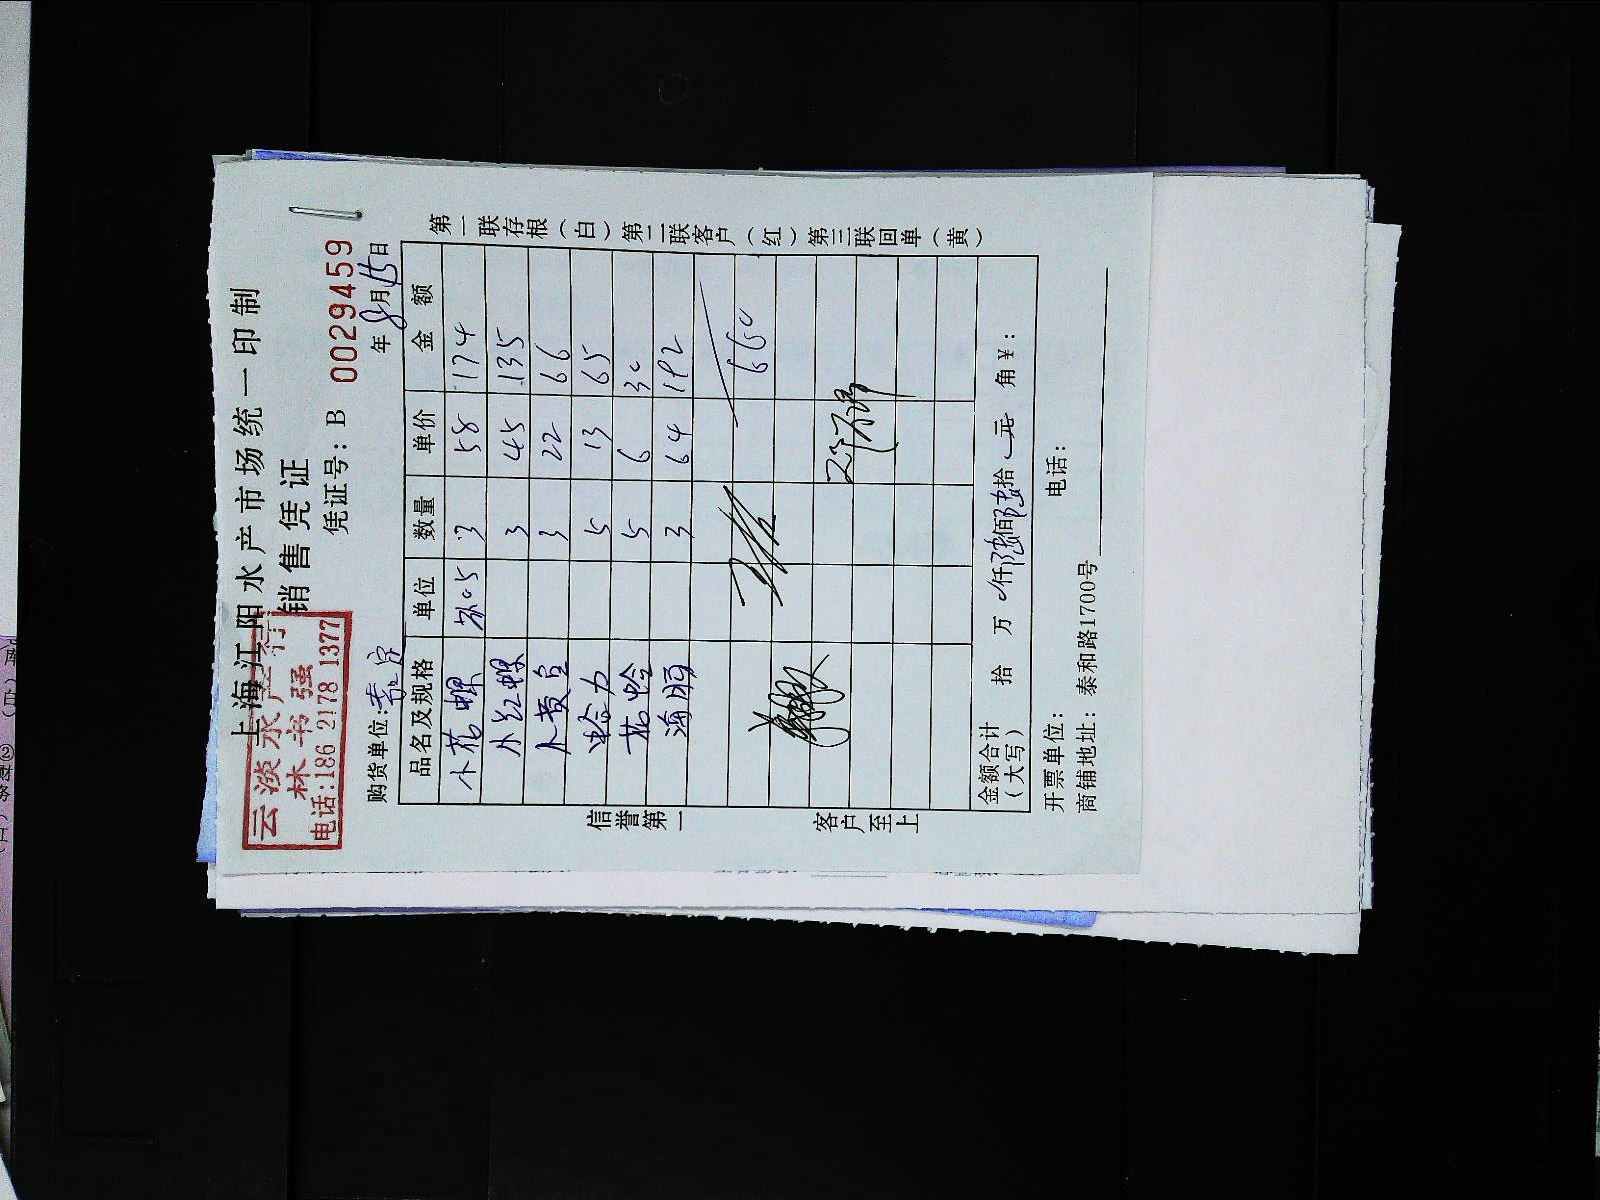 上海江阳水产市场统一印制
销售凭证
云淡水产行
林书强
电话:186 2178 1377
凭证号: B 0029459
购货单位: 年8月15日
品名及规格 单位 数量 单价 金额
小花螺 3 58 174
小红螺 3 45 135
小黄鱼 3 22 66
蛤力 5 13 65
花蛤 5 6 30
海胆 3 64 192
660
金额合计
(大写) 拾 万 仟陆佰陆拾 元 角 ¥:
开票单位: 电话:
商铺地址: 泰和路1700号
信誉第一 客户至上
第一联存根(白)第二联客户(红)第三联回单(黄)